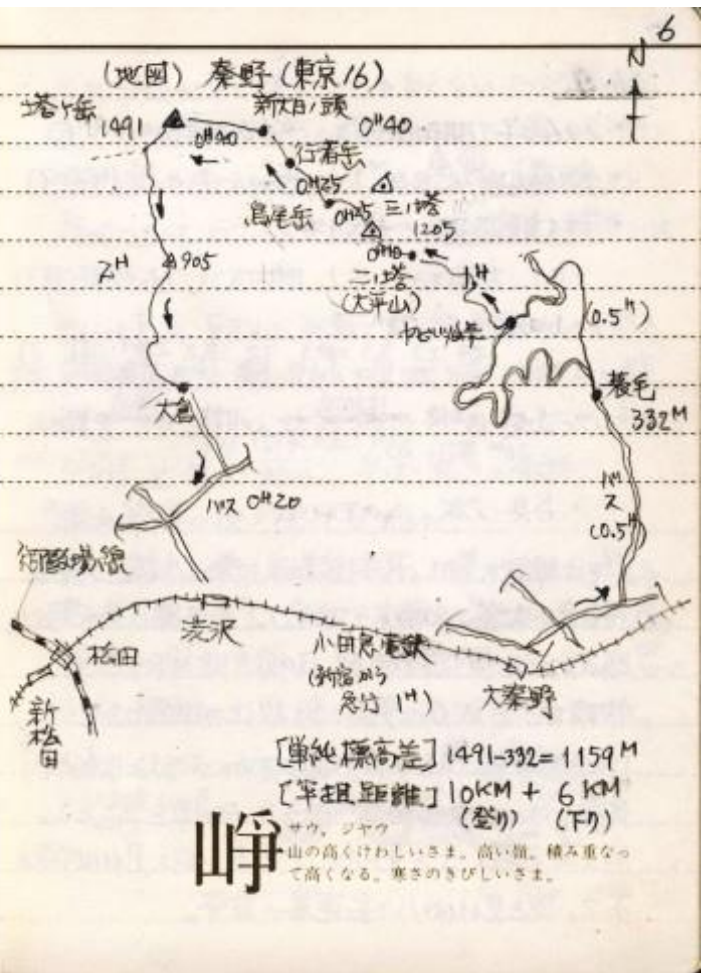 6
N
(地図) 秦野(東京16)
塔ヶ岳
1491
新大日ノ頭
0H40
0H40
行者岳
0H25
烏尾岳
0H25
三ノ塔
1205
0H10
二ノ塔
(大平山)
1H
ヤビツ峠
(0.5H)
蓑毛
332M
バス
(0.5H)
2H
905
大倉
バス 0H20
御殿場線
松田
新松田
渋沢
小田急電鉄
(新宿から
急行 1H)
大秦野
[単純標高差] 1491-332=1159M
[平坦距離] 10KM + 6KM
(登り) (下り)
崢
サウ。ジヤウ
山の高くけわしいさま。高い嶺。積み重なっ
て高くなる。寒さのきびしいさま。